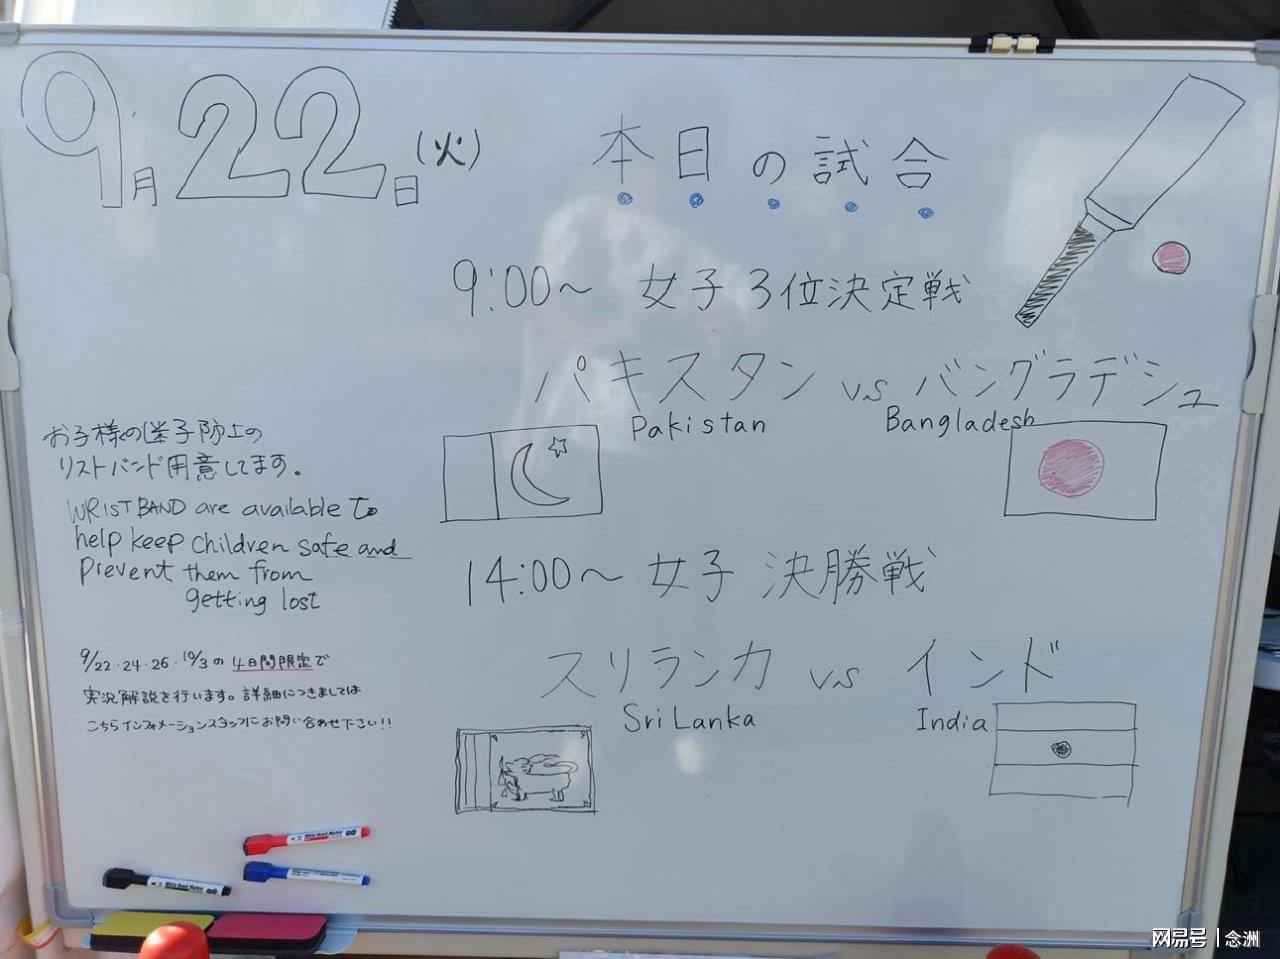 9月22日(火)
本日の試合
9:00～ 女子 3位決定戦
パキスタン vs バングラデシュ
Pakistan Bangladesh
14:00～ 女子 決勝戦
スリランカ vs インド
Sri Lanka India
お子様の迷子防止の
リストバンド用意してます。
WRIST BAND are available to
help keep children safe and
prevent them from
getting lost
9/22・24・26・10/3の4日間限定で
実況解説を行います。詳細につきましては
こちらインフォメーションスタッフにお問い合わせ下さい!!
网易号 | 念洲